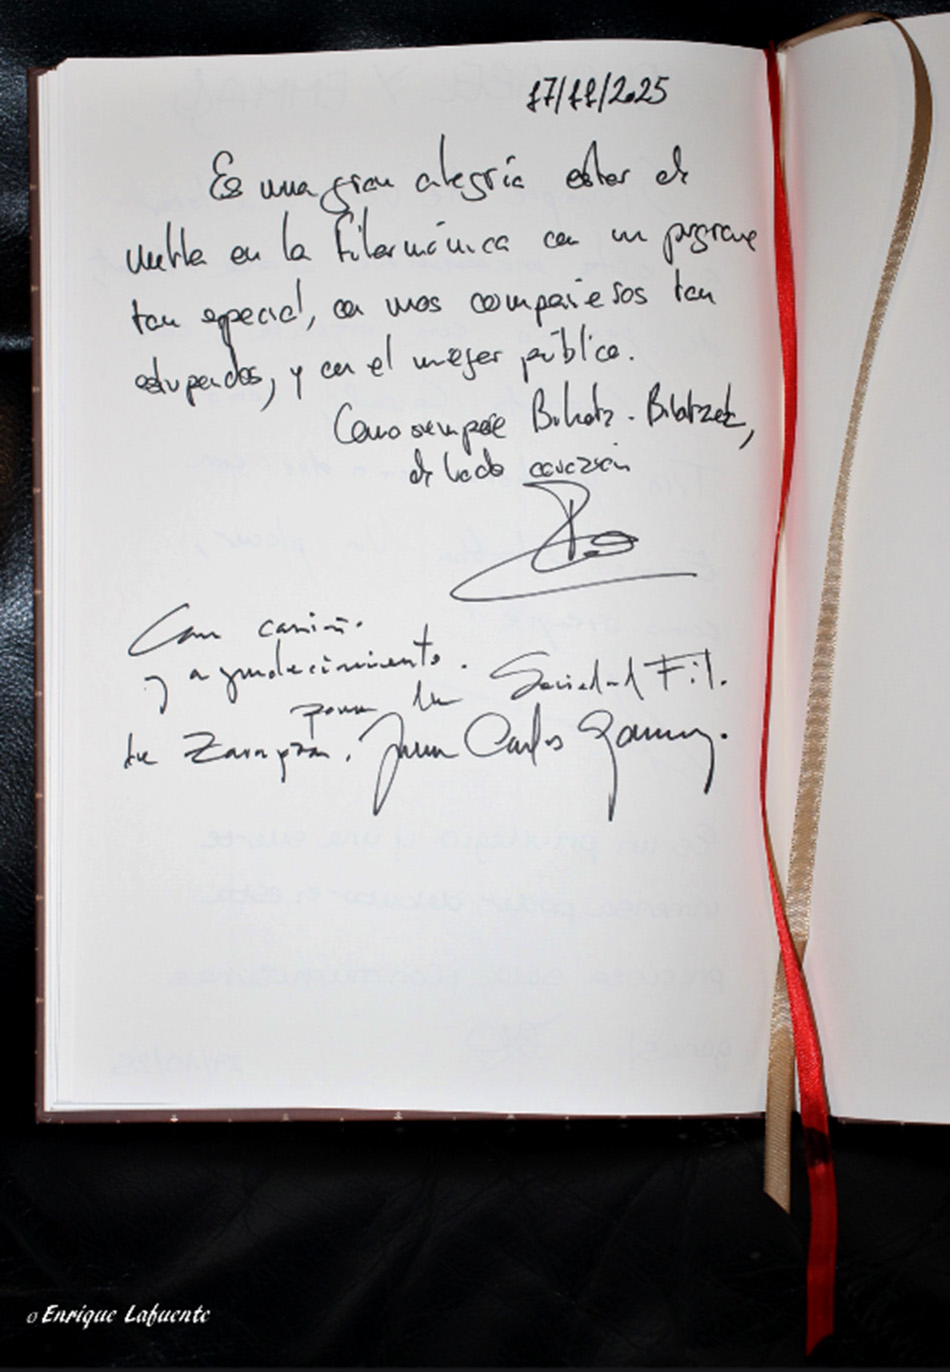 17/11/2025
Es una gran alegría estar de
vuelta en la Filarmónica con un programa
tan especial, con unos compañeros tan
estupendos, y con el mejor público.
Como siempre Bihotz - Bihotzez,
de todo corazón
Con cariño
y agradecimiento.
para la Sociedad Fil.
de Zaragoza. Juan Carlos
© Enrique Lafuente